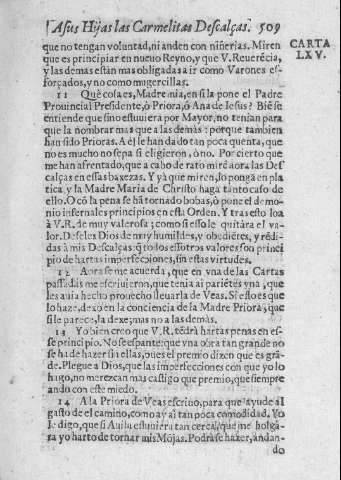 A sus Hijas las Carmelitas Descalças. 509
CARTA
LXV.
que no tengan voluntad, ni anden con niñerias. Miren
que es principiar en nueuo Reyno, y que V. Reuerēcia,
y las demàs estàn mas obligadas a ir como Varones es-
forçados, y no como mugercillas.
11 Què cosa es, Madre mia, en si la pone el Padre
Prouincial Presidente, ò Priora, ò Ana de Iesus? Biē se
entiende que si no estuuiera por Mayor, no tenían para
que la nombrar mas que a las demàs: porque tambien
han sido Prioras. A èl le han dado tan poca quenta, que
no es mucho no sepa si eligieron, ò no. Por cierto que
me han afrentado, que a cabo de rato mirē aora las Des
calças en essas baxezas. Y yà que miren, lo pongā en pla
tica y la Madre Maria de Christo haga tanto caso de
ello. O cō la pena se hā tornado bobas, ò pone el demo-
nio infernales principios en esta Orden. Y tras esto loa
à V.R. de muy valerosa; como si esso le quitàra el va-
lor. Deseles Dios de muy humildes, y obediētes, y rēdi-
das à mis Descalças; q̄ todos essotros valores son princi
pio de hartas imperfecciones, sin estas virtudes.
12 Aora se me acuerda, que en vna de las Cartas
passadas me escriuieron, que tenia aì parietēs vna, que
les auia hecho prouecho lleuarla de Veas. Si esto es que
lo haze, dexo en la conciencia de la Madre Priora, que
si le parece, la dexe; mas no a las demàs.
13 Yo bien creo que V.R. tēdrà hartas penas en es-
se principio. No se espante; que vna obra tan grande no
se ha de hazer sin ellas, pues el premio dizen que es grā-
de. Plegue a Dios, que las imperfecciones con que yo lo
hago, no merezcan mas castigo que premio, que siempre
ando con este miedo.
14 A la Priora de Veas escriuo, para que ayude al
gasto de el camino, como ay aì tan poca comodidad. Yo
le digo, que si Auila estuuiera tan cerca, que me holgà-
ra yo harto de tornar mis Mōjas. Podràse hazer, andan-
do